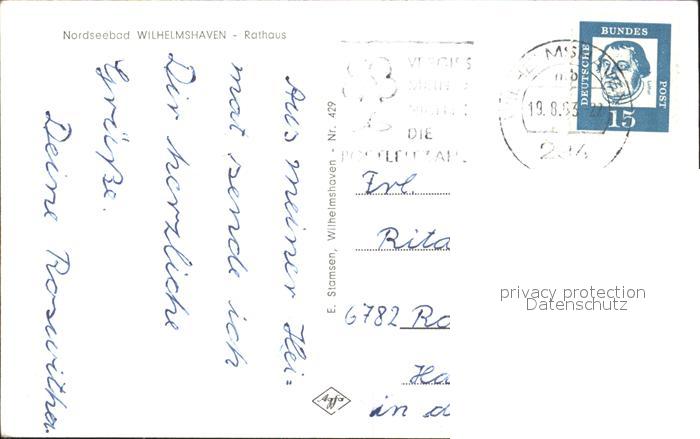 Nordseebad WILHELMSHAVEN - Rathaus
Aus meiner Hei=
mat sende ich
Dir herzliche
Grüße.
Deine Roswitha.
E. Stamsen, Wilhelmshaven - Nr. 429
Agfa
VERGISS
MEIN
NICHT
DIE
POSTLEITZAHL
19.8.63
DEUTSCHE
BUNDES
POST
Luther
15
Frl.
Rita
6782 Ro
Ha
in d
privacy protection
Datenschutz